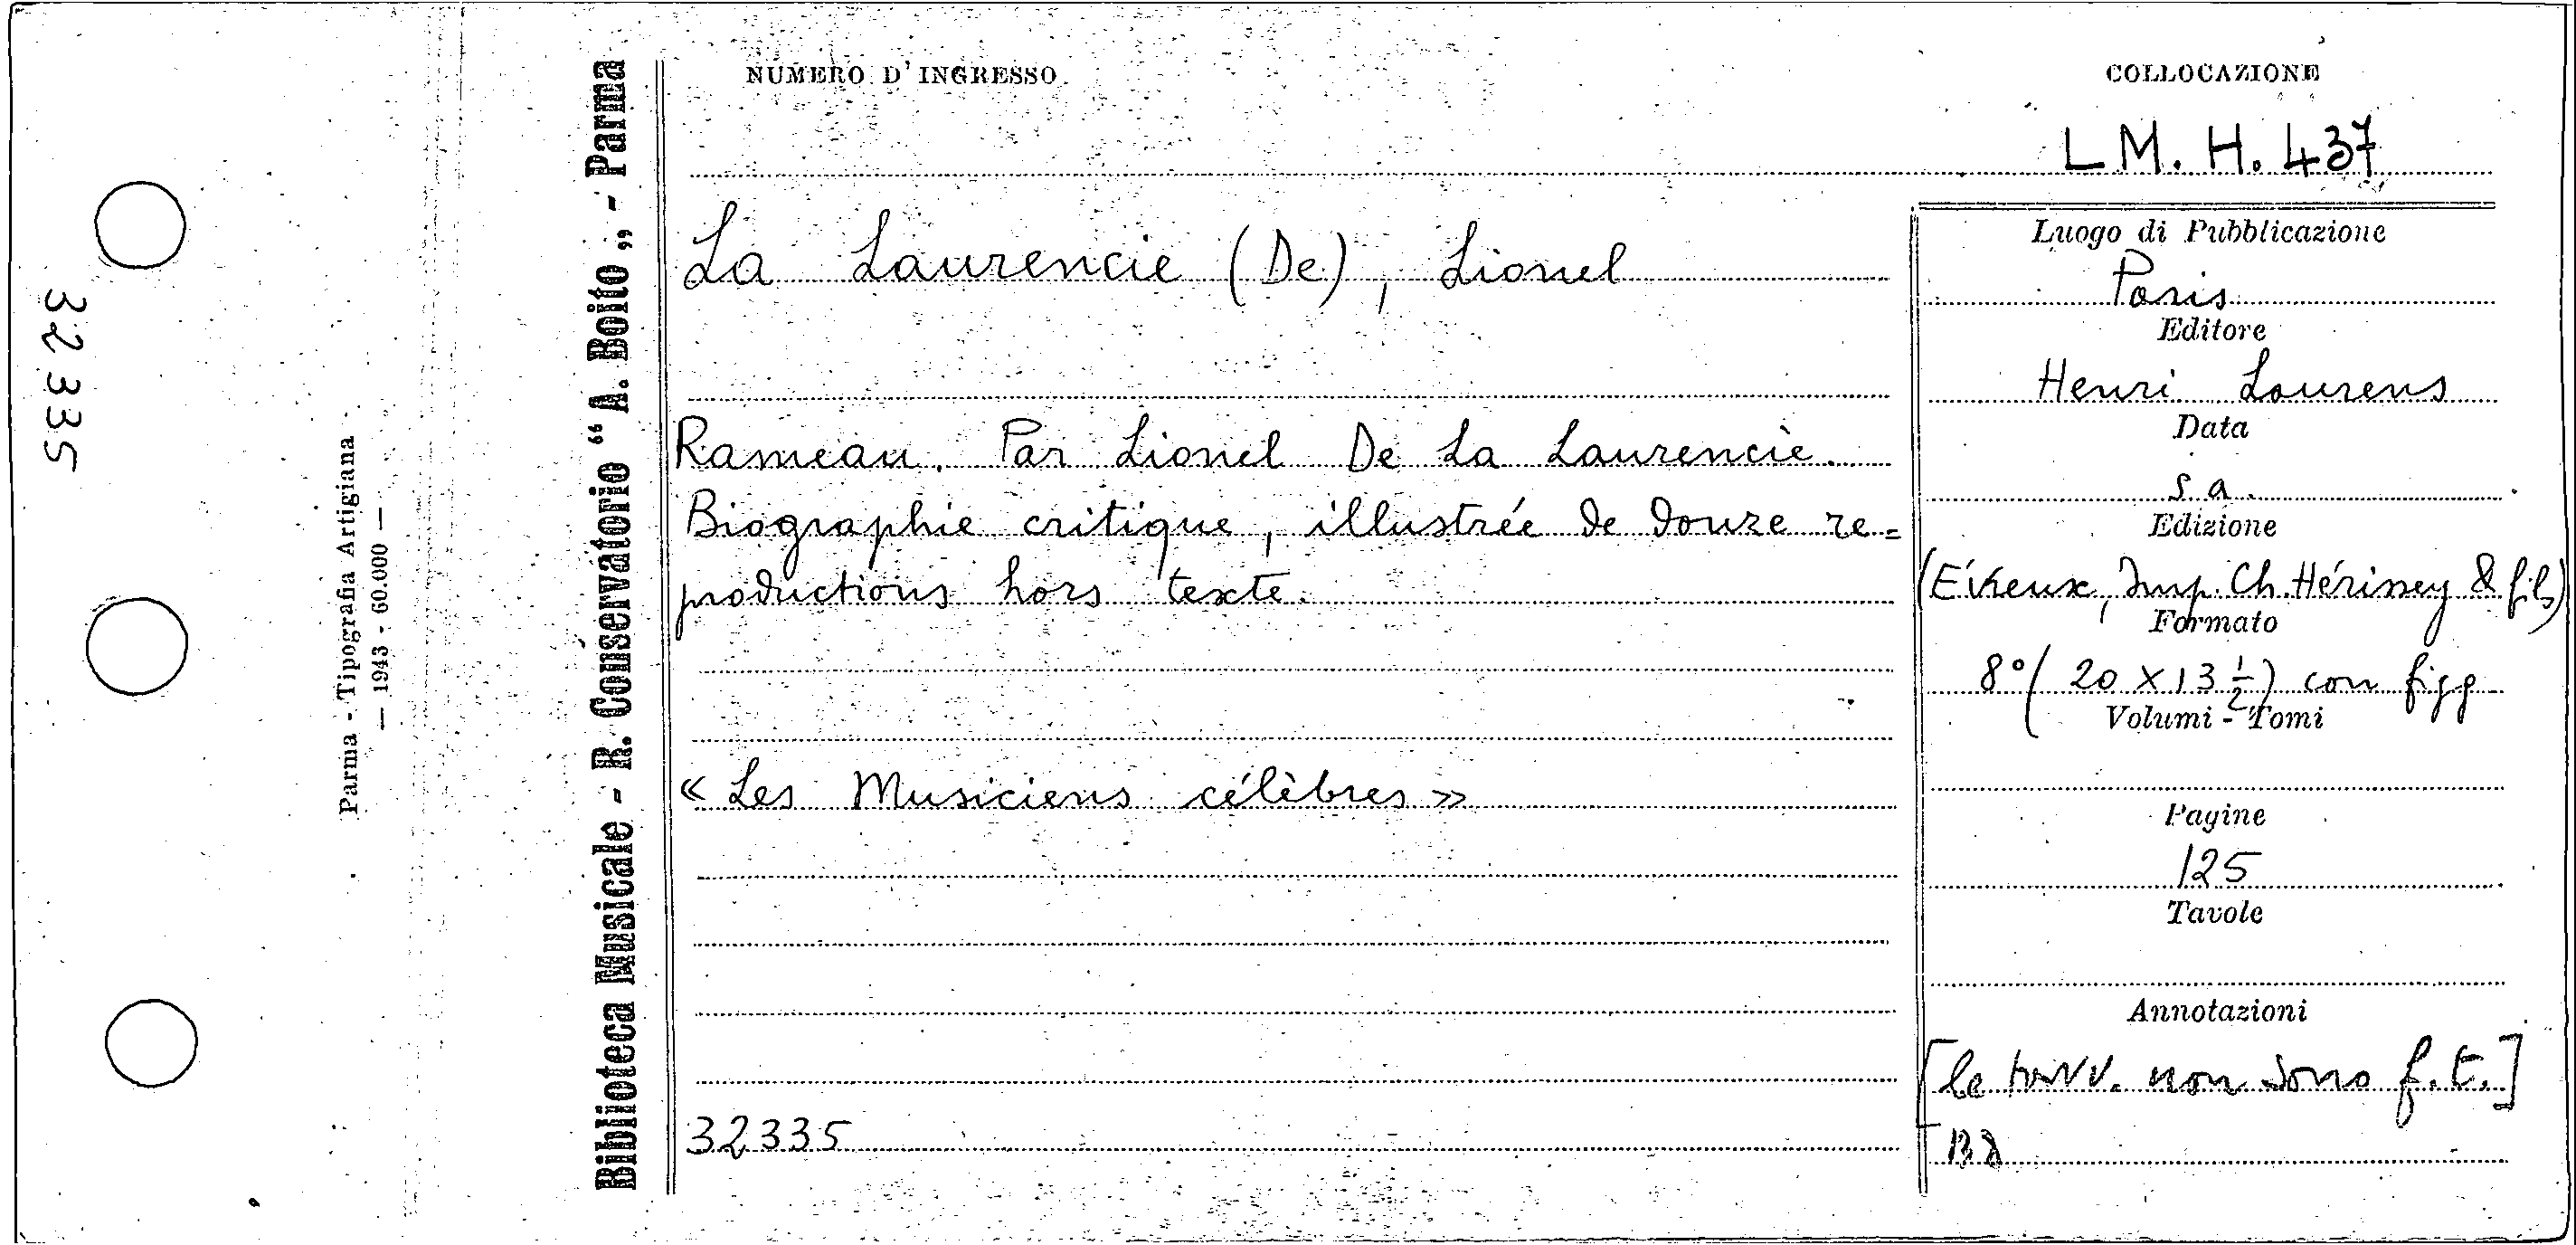 32335
Parma - Tipografia Artigiana
— 1943 - 60.000 —
Biblioteca Musicale - R. Conservatorio “A. Boito„ - Parma
NUMERO D'INGRESSO
COLLOCAZIONE
L.M. H. 437
La Laurencie (De), Lionel
Rameau. Par Lionel De La Laurencie.
Biographie critique, illustrée de douze re=
productions hors texte.
« Les Musiciens célèbres »
32335
Luogo di Pubblicazione
Paris
Editore
Henri Laurens
Data
s. a.
Edizione
(Evreux, Imp. Ch. Hérissey & fils)
Formato
8° (20 X 13 ½) con figg
Volumi - Tomi
Pagine
125
Tavole
Annotazioni
[le tavv. non sono f.t.]